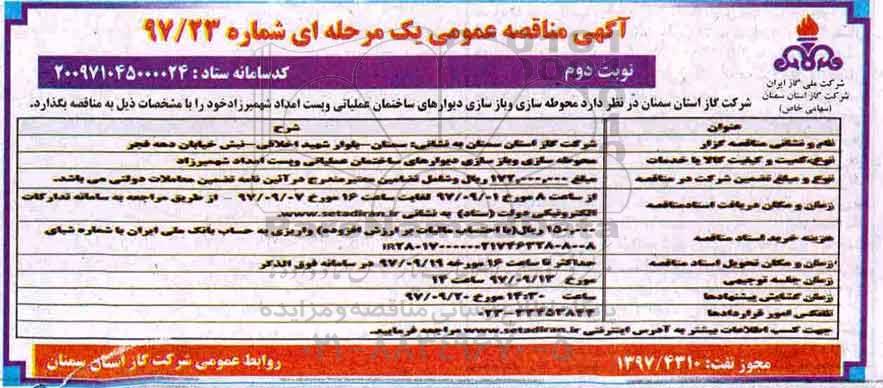 آگهی مناقصه عمومی یک مرحله ای شماره ۹۷/۲۳
نوبت دوم
کدسامانه ستاد : ۲۰۰۹۷۱۰۴۵۰۰۰۰۲۴
شرکت ملی گاز ایران
شرکت گاز استان سمنان
(سهامی خاص)
شرکت گاز استان سمنان در نظر دارد محوطه سازی وباز سازی دیوارهای ساختمان عملیاتی وپست امداد شهمیرزادخود را با مشخصات ذیل به مناقصه بگذارد.
عنوان شرح
نام و نشانی مناقصه گزار شرکت گاز استان سمنان به نشانی: سمنان-بلوار شهید اخلاقی-نبش خیابان دهه فجر
نوع،کمیت و کیفیت کالا یا خدمات محوطه سازی وباز سازی دیوارهای ساختمان عملیاتی وپست امداد شهمیرزاد
نوع و مبلغ تضمین شرکت در مناقصه مبلغ ۱۷۲,۰۰۰,۰۰۰ ریال وشامل تضامین معتبرمندرج درآئین نامه تضمین معاملات دولتی می باشد.
زمان و مکان دریافت اسنادمناقصه از ساعت ۸ مورخ ۹۷/۰۹/۰۱ لغایت ساعت ۱۶ مورخ ۹۷/۰۹/۰۷ - از طریق مراجعه به سامانه تدارکات
الکترونیکی دولت (ستاد) به نشانی www.setadiran.ir.
هزینه خرید اسناد مناقصه ریال(با احتساب مالیات بر ارزش افزوده) واریزی به حساب بانک ملی ایران با شماره شبای
زمان و مکان تحویل اسناد مناقصه حداکثر تا ساعت ۱۶ مورخه ۹۷/۰۹/۱۹ در سامانه فوق الذکر
زمان جلسه توجیهی مورخ ۹۷/۰۹/۱۳ ساعت ۱۳
زمان گشایش پیشنهادها ساعت ۱۴:۳۰ مورخ ۹۷/۰۹/۲۰
تلفکس امور قراردادها
جهت کسب اطلاعات بیشتر به آدرس اینترنتی www.setadiran.ir مراجعه فرمایید.
مجوز تفت: ۱۳۹۷/۴۳۱۰
روابط عمومی شرکت گاز استان سمنان